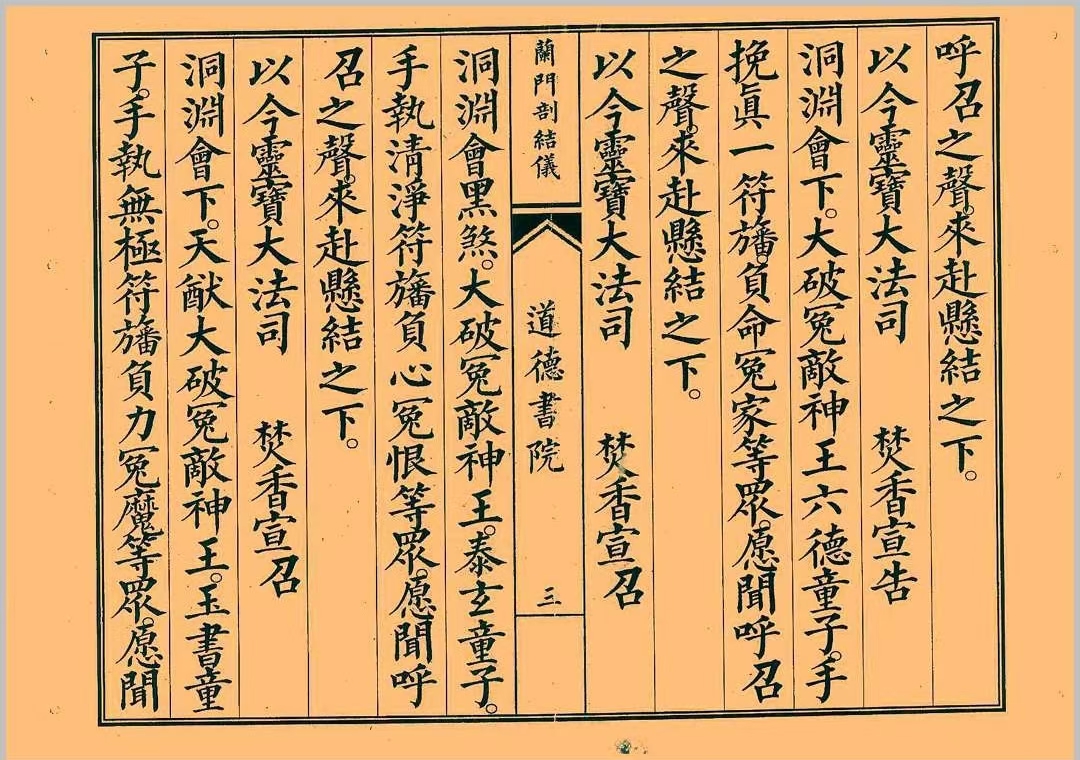 呼召之聲。來赴懸結之下。
以今靈寶大法司 焚香宣告
洞淵會下。大破冤敵神王六德童子。手
挽眞一符旛。負命冤家等眾。愿聞呼召
之聲。來赴懸結之下。
以今靈寶大法司 焚香宣召
蘭門剖結儀 道德書院 三
洞淵會黑煞。大破冤敵神王。泰玄童子。
手執清淨符旛負心冤恨等眾。愿聞呼
召之聲。來赴懸結之下。
以今靈寶大法司 焚香宣召
洞淵會下。天猷大破冤敵神王。玉書童
子。手執無極符旛負力冤魔等眾。愿聞